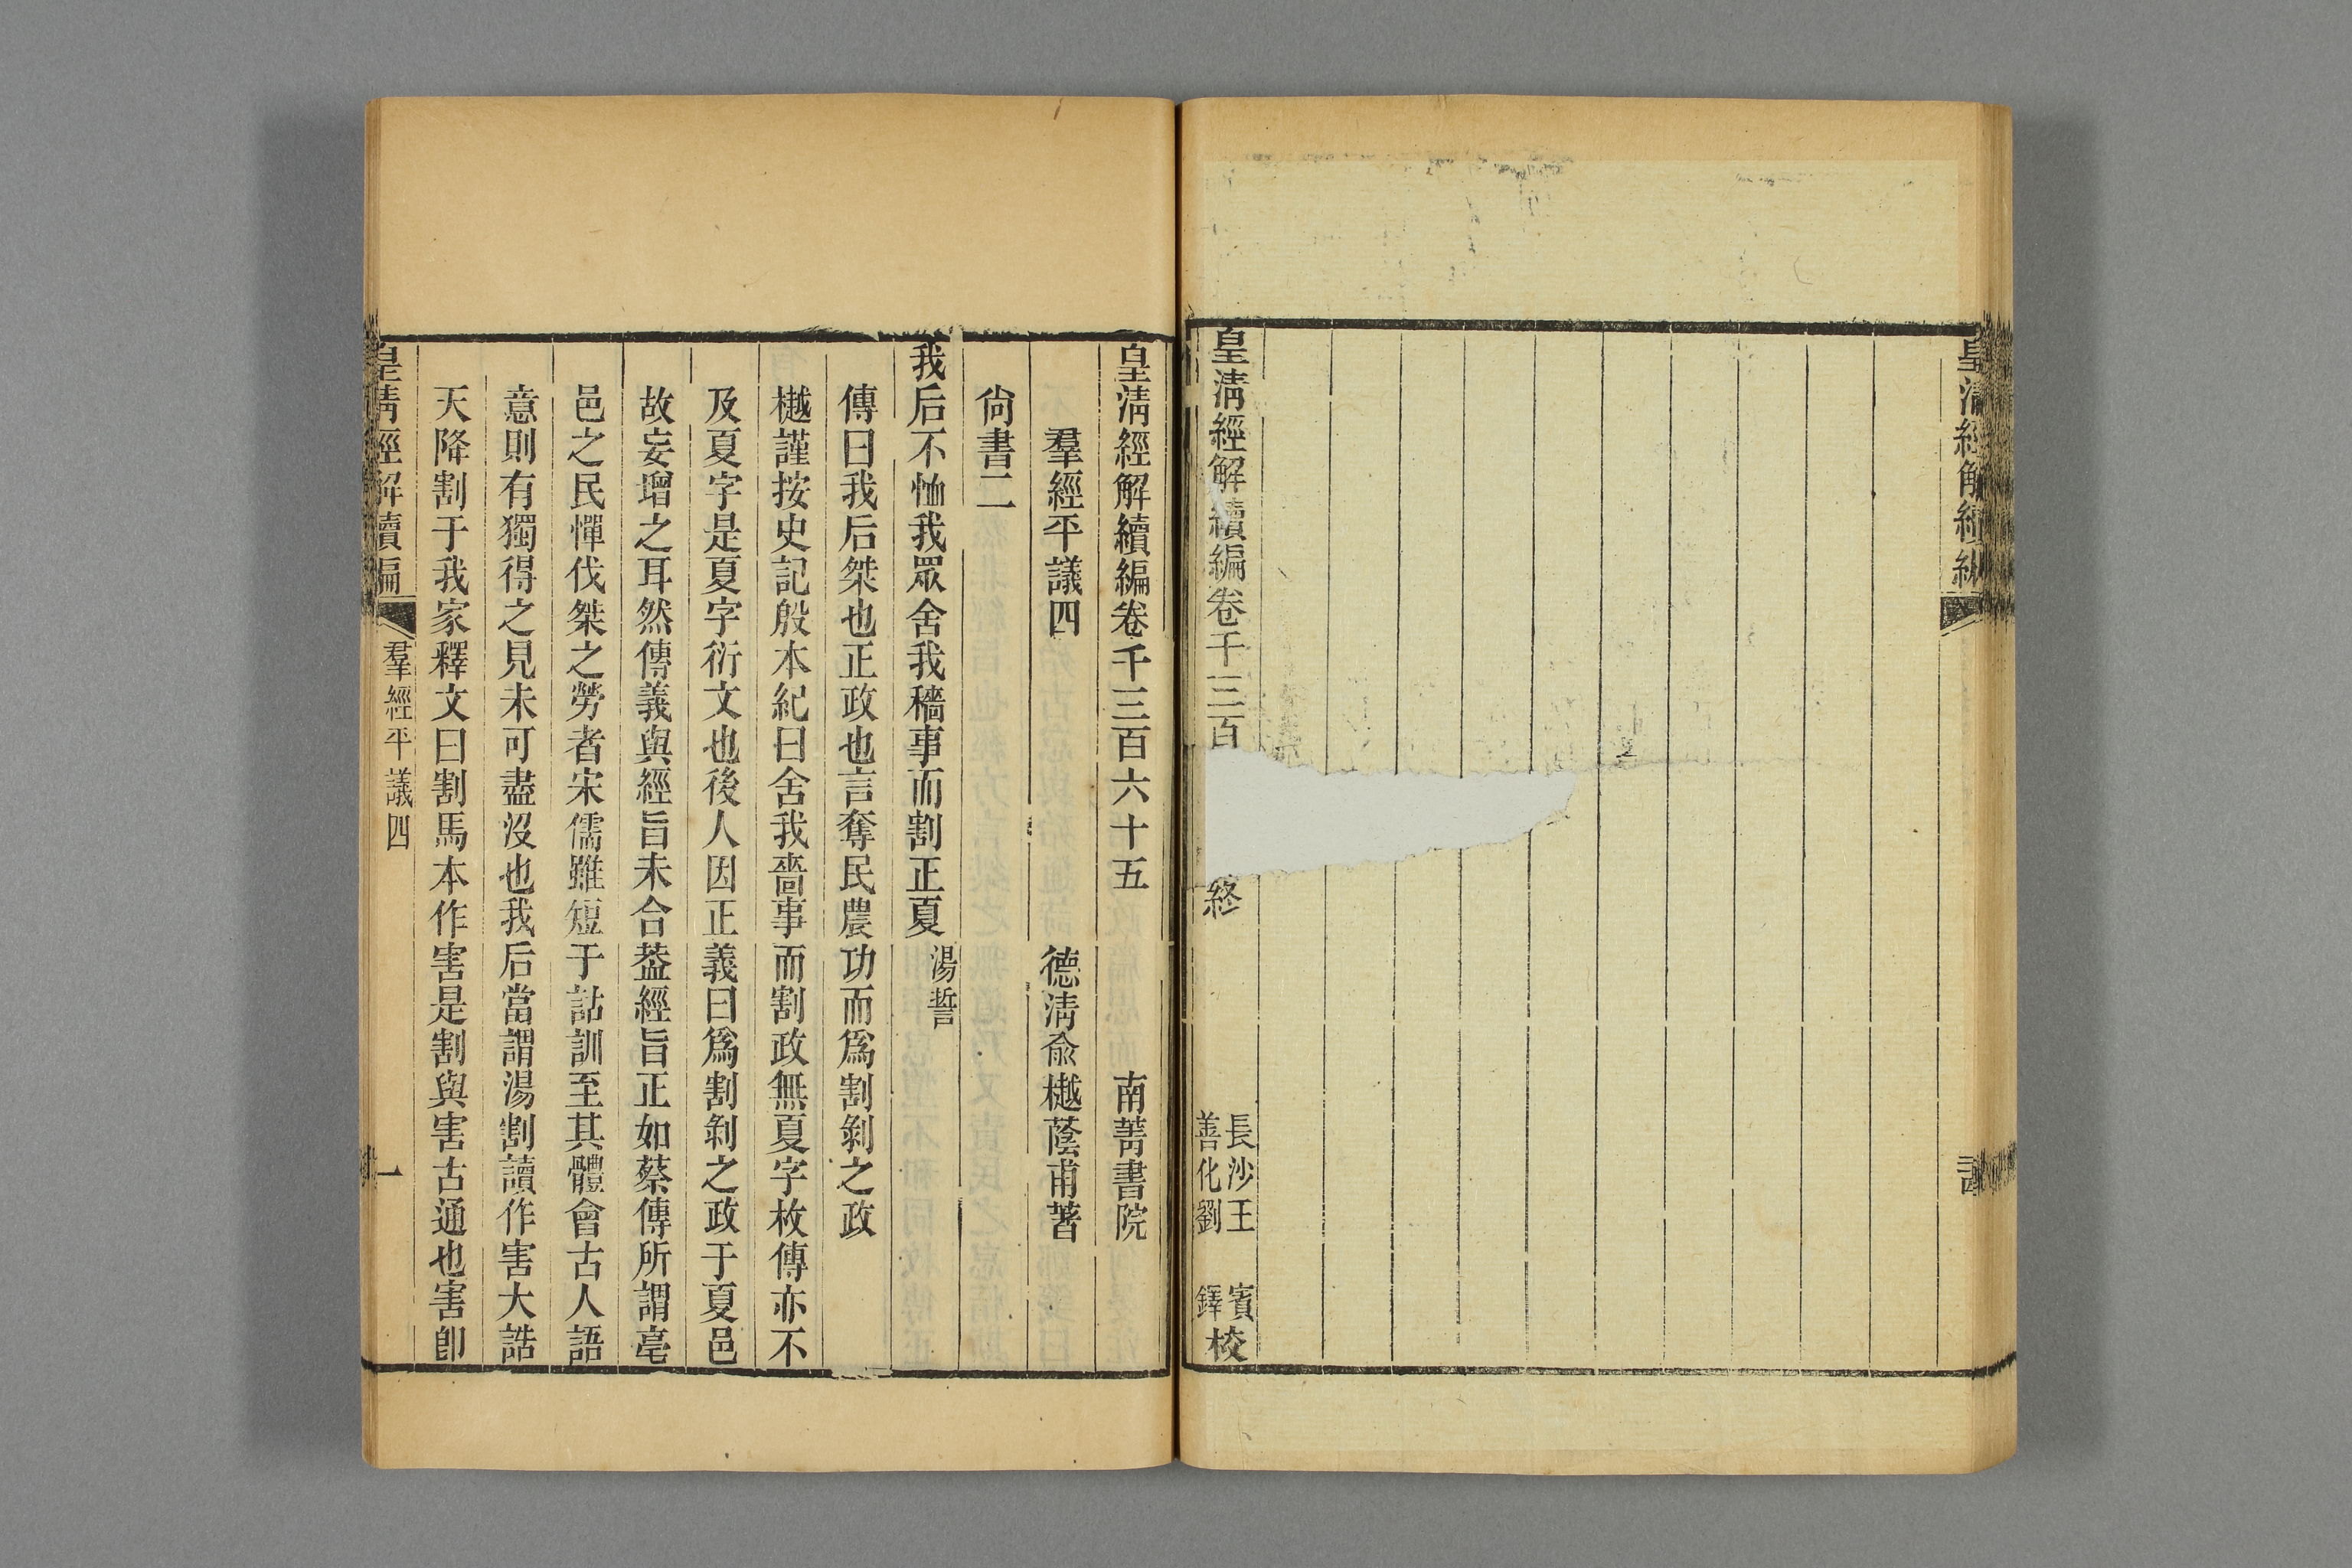 皇清經解續編
皇清經解續編卷千三百
終
長沙王賓
善化劉鐸
校
皇清經解續編卷千三百六十五 南菁書院
羣經平議四 德清俞樾蔭甫著
尙書二
我后不恤我眾舍我穡事而割正夏 湯誓
傳曰我后桀也正政也言奪民農功而爲割剝之政
樾謹按史記殷本紀曰舍我嗇事而割政無夏字枚傳亦不
及夏字是夏字衍文也後人因正義曰爲割剝之政于夏邑
故妄增之耳然傳義與經旨未合葢經旨正如蔡傳所謂亳
邑之民憚伐桀之勞者宋儒雖短于詁訓至其體會古人語
意則有獨得之見未可盡沒也我后當謂湯割讀作害大誥
天降割于我家釋文曰割馬本作害是割與害古通也害卽
皇清經解續編 羣經平議四 一